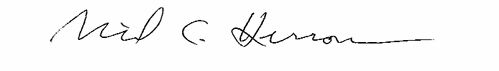 Neil C. Herron